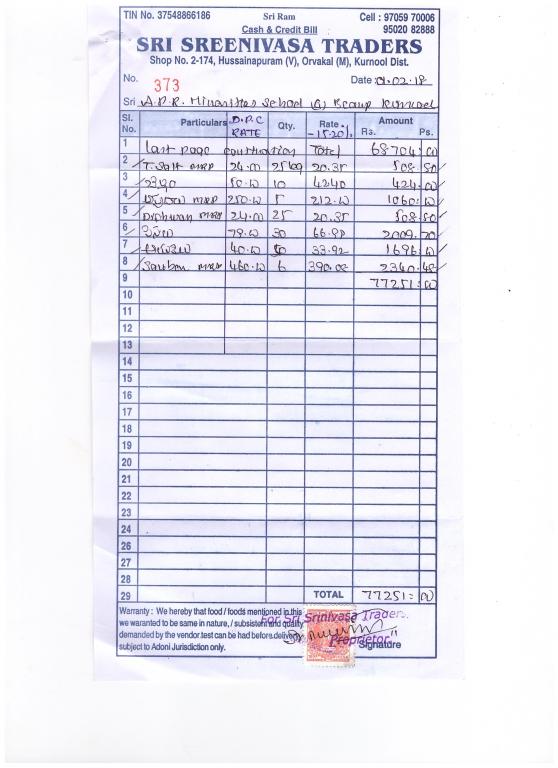 TIN No. 37548866186 Sri Ram Cell : 97059 70006
Cash & Credit Bill 95020 82888
SRI SREENIVASA TRADERS
Shop No. 2-174, Hussainapuram (V), Orvakal (M), Kurnool Dist.
No. 373 Date : 01.02.18
Sri A.P.R. School Kurnool
Sl. No. Particulars D.P.C RATE Qty. Rate -15.20% Amount Rs. Ps.
1 last page Total 68704:00
2 T. Salt MRP 24.00 25 kg 20.35 508.80
3 50.00 10 4240 424.00
4 MRP 250.00 5 212.00 1060.00
5 24.00 25 20.35 508.80
6 30 2009.70
7 40.00 33.92 1696.00
8 MRP 460.00 6 390.08 2340.48
9 77251:00
10
11
12
13
14
15
16
17
18
19
20
21
22
23
24
26
27
28
29 TOTAL 77251:00
Warranty : We hereby that food / foods mentioned in this
we waranted to be same in nature, / subsistent and quality
demanded by the vendor test can be had before delivery
subject to Adoni Jurisdiction only.
For Sri Srinivasa Traders
Proprietor
Signature